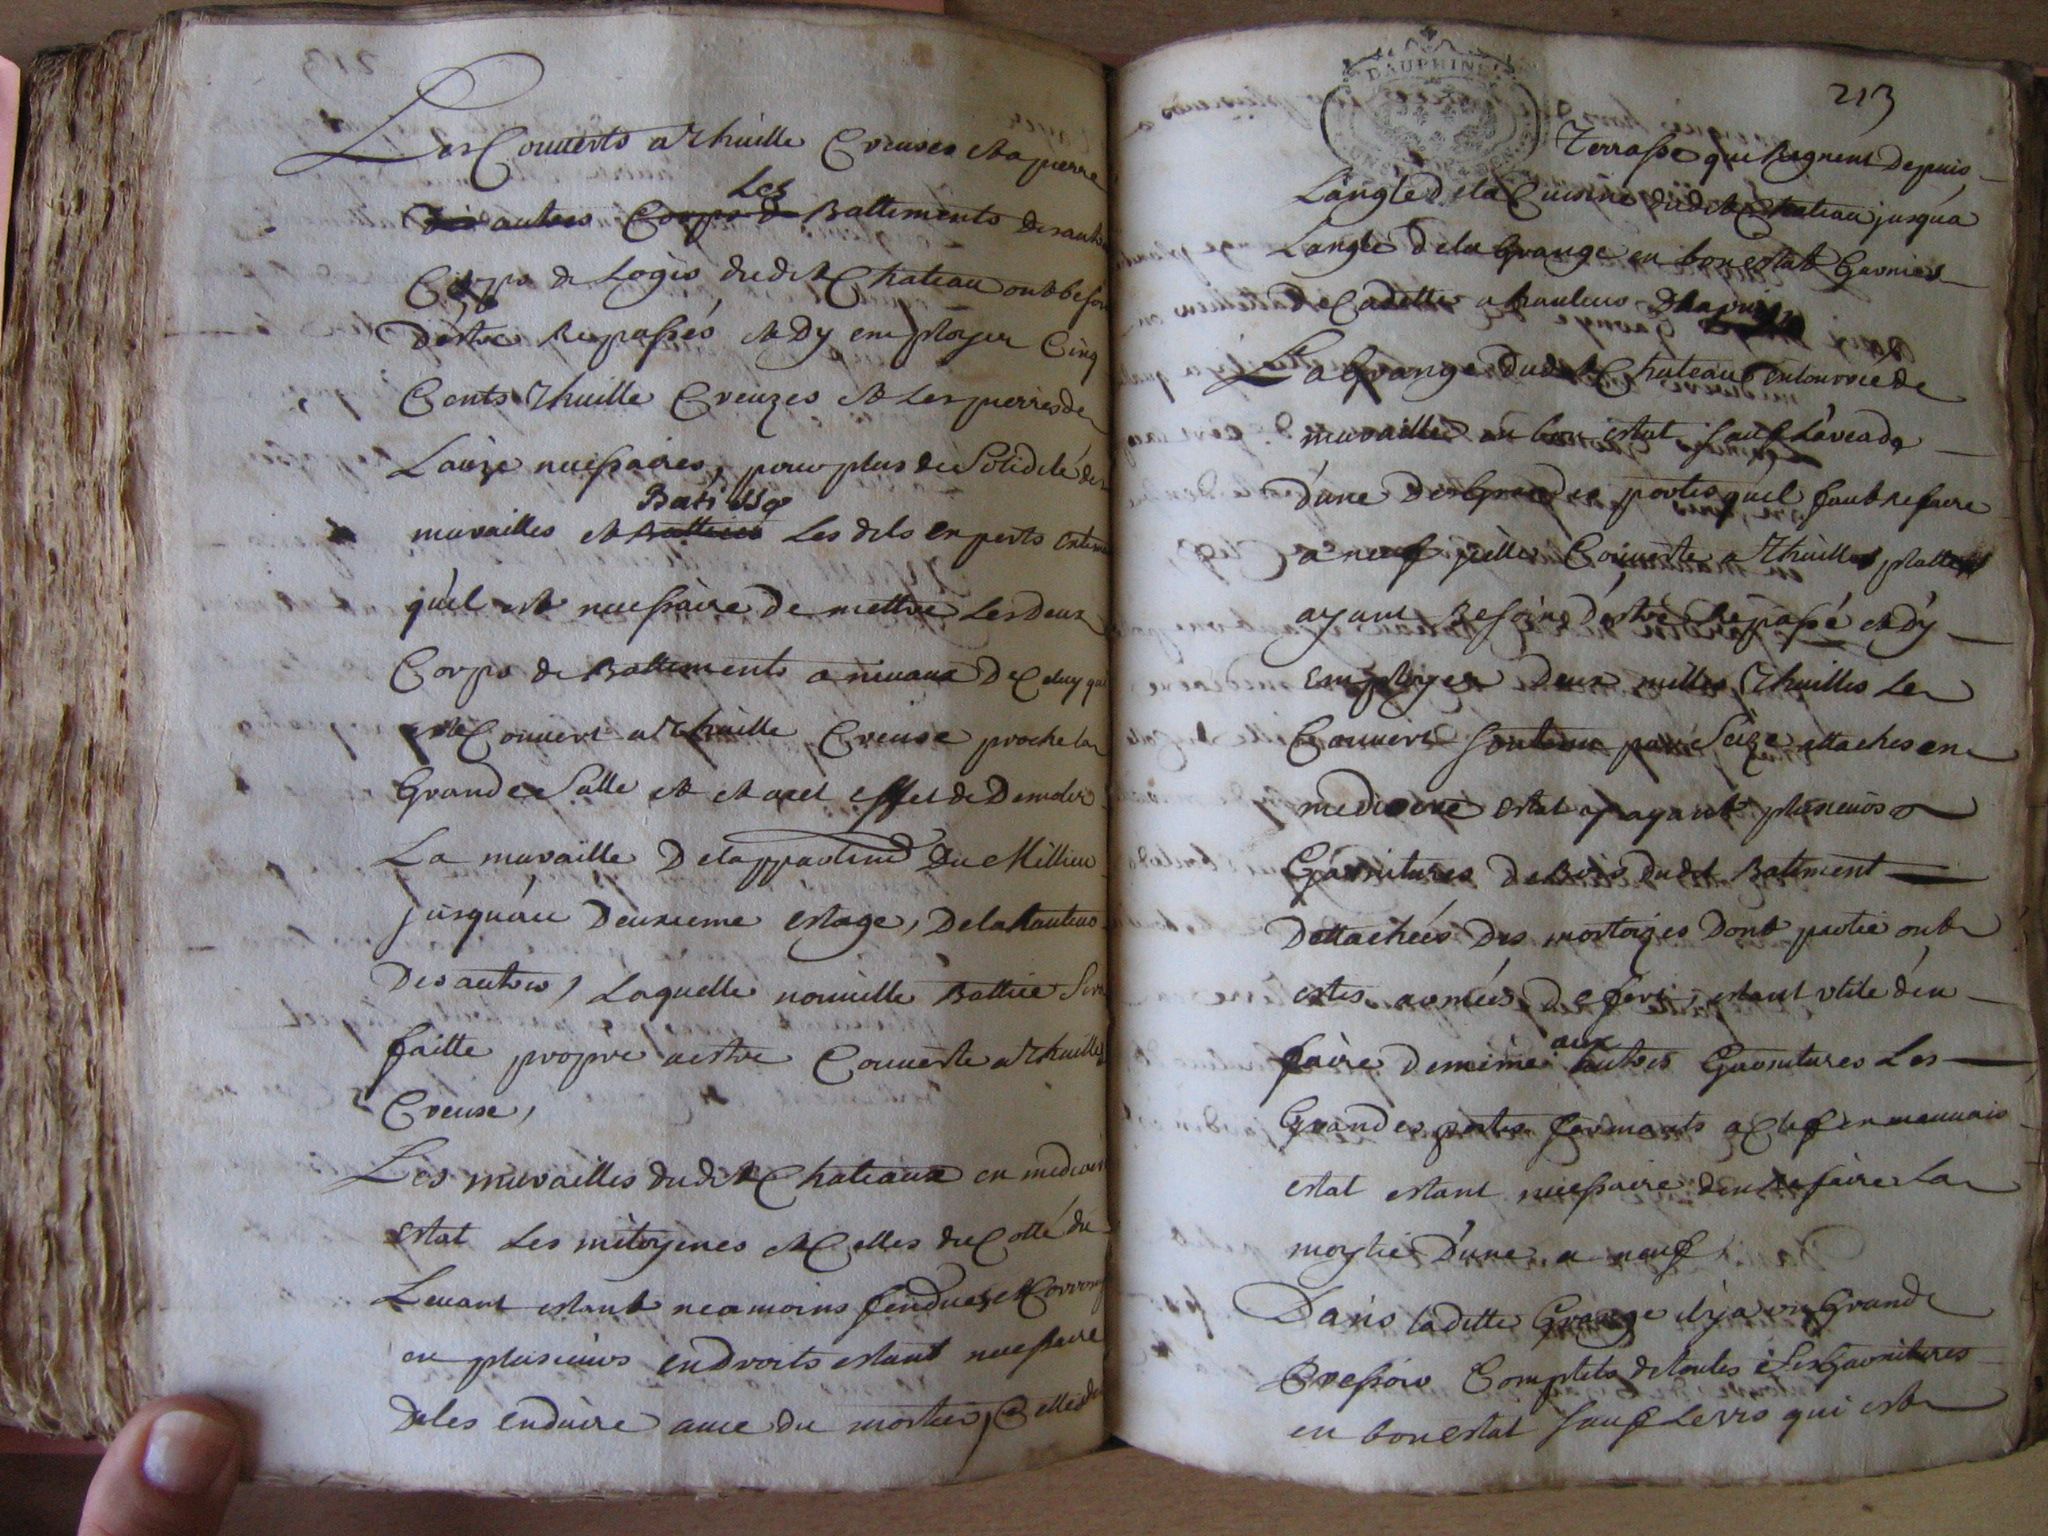 Les Couverts a Thuille Creuses et a pierre
Les
autres Corps de Battiments des autres
Corps de Logis dudit Chateau ont besoin
d'estre Repassés et Dy employer Cinq
Cents Thuille Creuzes et Les pierres de
Lauze necessaires, pour plus de Solidité des
Batisse
murailles et Les dits Experts
qu'il est necessaire De mettre Les deux
Corps de Battiments a niuaux De Celuy qui
est Couvert a Thuille Creuse proche la
Grande Salle et et a cet effet de Demolir
La muraille De lappartemt Du Millieu
jusqu'au Deuxieme estage, De la hauteur
Des autres, Laquelle nouuelle Battice Sera
faitte propre a estre Couuerte a Thuille
Creuse,
Les murailles dudit Chateaux en mediocre
Estat Les mitoyenes et Celles du Cotté du
Leuant estant neamoins fendues et
en plusieurs endroits estant necessaire
de les enduire auec du mortier, Celles du
213
DAUPHINE
Terrasse qui Regnent Depuis
L'angle de la Cuisine dudit Chateau jusqu'a
Langle de la Grange en bon estat Garnies
de Cadette a hauteur
La Grange dudit Chateau Entource de
muraille en bon estat sauf
d'une Des Grandes portes quil faut refaire
a neuf jcelle Couuerte a Thuilles plattes
ayant Besoin d'estre Repassé et d'y
Employer Deux milles Thuilles Le
Couuert soutenu par Seize attaches en
mediocre estat y ayant plusieurs
Garnitures de Bois dudit Batiment
Dettachées Des mortoizes Dont partie ont
estés armées De fert, estant utile d'en
aux
faire De mème autres Garnitures Les
Grandes portes fermants a Clef en mauuais
estat estant necessaire d'en Refaire La
moytié D'une a neuf,
Dans laditte Grange il y a un Grand
Pressoir Complets de toutes Ses Garnitures
en bon Estat sauf Le vis qui est